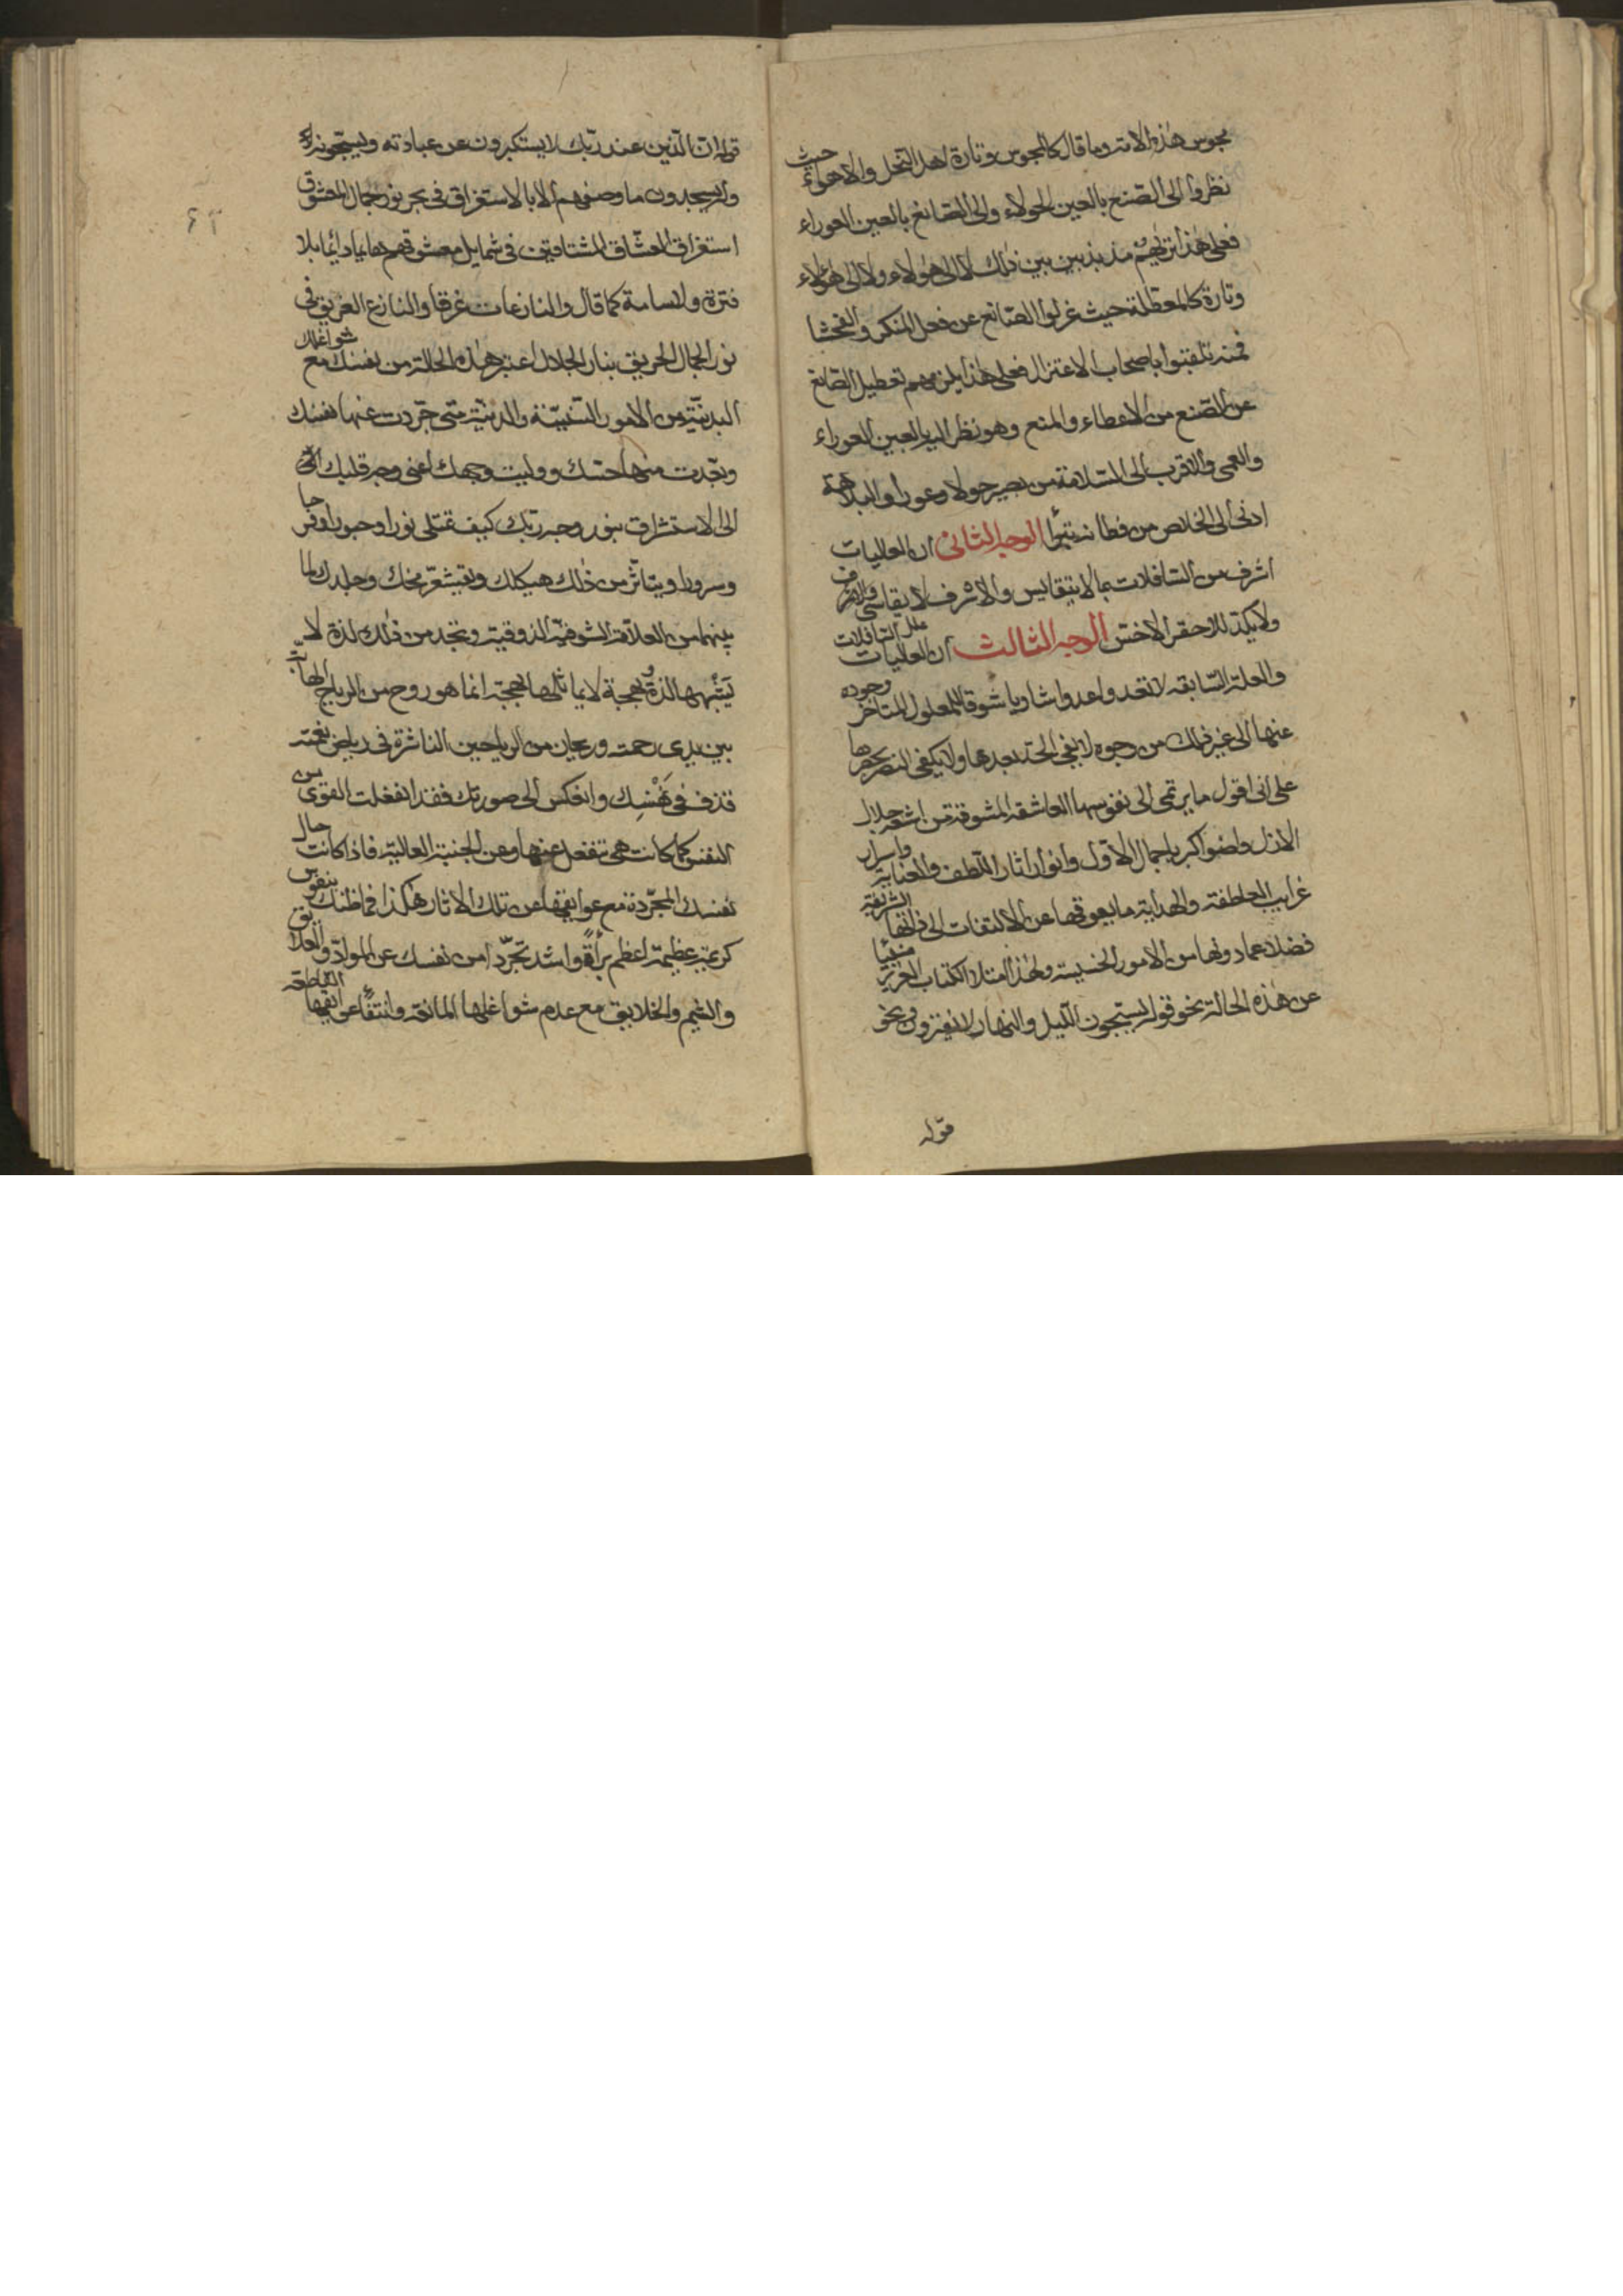 مجوس هذه الامة وما قال كالمجوس وتارة اهل النحل والاهواء حيث
نظروا الى الصنع بالعين الحولاء والى الصانع بالعين العوراء
فعلى هذا تريهم مذبذبين بين ذلك لا الى هؤلاء ولا الى هؤلاء
وتارة كالمعطلة حيث عزلوا الصانع عن فعل المنكر والفحشا
فمنه تلقبوا باصحاب الاعتزال فعلى هذا يلزمهم تعطيل الصانع
عن الصنع من الاعطاء والمنع وهو نظر اليه بالعين العوراء
والعمى والاقرب الى السلامة من بصير حولا وعورا والبلاهة
ادنى الى الخلاص من فطانة بتيرا الوجه الثانى ان العاليات
اشرف من السافلات بما لا يتقايس والاشرف لا يقاسى
ولا يكد للاحقر الاخس الوجه الثالث ان العاليات علل السافلات
والعلة السابقة لا تعدو اعدوا شاويا شوقا للمعلول المتاخر وجوده
عنها الى غير ذلك من وجوه لا يفى الحد بعدها ولا يكفى النصر بحصرها
على انى اقول ما يرتمى الى نفوسها العاشقة المشوقة من اشعة جلال
الازل واضواء كبرياء جمال الاول وانوار اثار اللطف والعناية واسرار
غرايب العاطفة والهداية ما يعوقها عن الالتفات الى ذاتها الشريفة
فضلا عما دونها من الامور الخسيسة ولهذا امتلا الكتاب العزيز منبئا
عن هذه الحالة نحو قوله يسبحون الليل والنهار لا يفترون ونحو
قوله
قوله ان الذين عند ربك لا يستكبرون عن عبادته ويسبحونه
وله يسجدون ما وصفهم الا بالاستغراق فى بحر نور جمال المعشوق
استغراق العشاق المشتاقين فى شمايل معشوقهم دائما بلا
فترة ولا سامة كما قال والنازعات غرقا والنازع الغريق فى
نور الجمال الحريق بنار الجلال اعتبر هذه الحالة من نفسك مع شواغلك
البدنية من الامور والدنية متى جردت عنها نفسك
وتجدت منها حسك ووليت وجهك اعنى وجه قلبك
الى الاستشراق بنور وجه ربك كيف تمتلى نورا وحبورا وفرحا
وسرورا ويتاثر من ذلك هيكلك ويقشعر مخك وجلدك لما
بينهما من العلاقة الشوقية الذوقية وتجد من ذلك لذة لا
يشبهها لذة وبهجة لا يماثلها بهجة انما هو روح من الرياح
بين يدى رحمته وريحان من الرياحين الناشرة فى رياض نعمته
قذف فى نفسك وانعكس الى صورتك فقد انفعلت القوى من
النفس كما كانت هى تنفعل عنها وعن الجنبة العالية فاذا كانت حال
نفسك المجردة مع عوايقها عن تلك الاثار هكذا فما ظنك بنفوس
كريمة عظيمة اعظم براقة واشد تجردا من نفسك عن المواد والعلايق
والغيم والخلايق مع عدم شواغلها المانعة وانتفاء عوايقها القاطعة